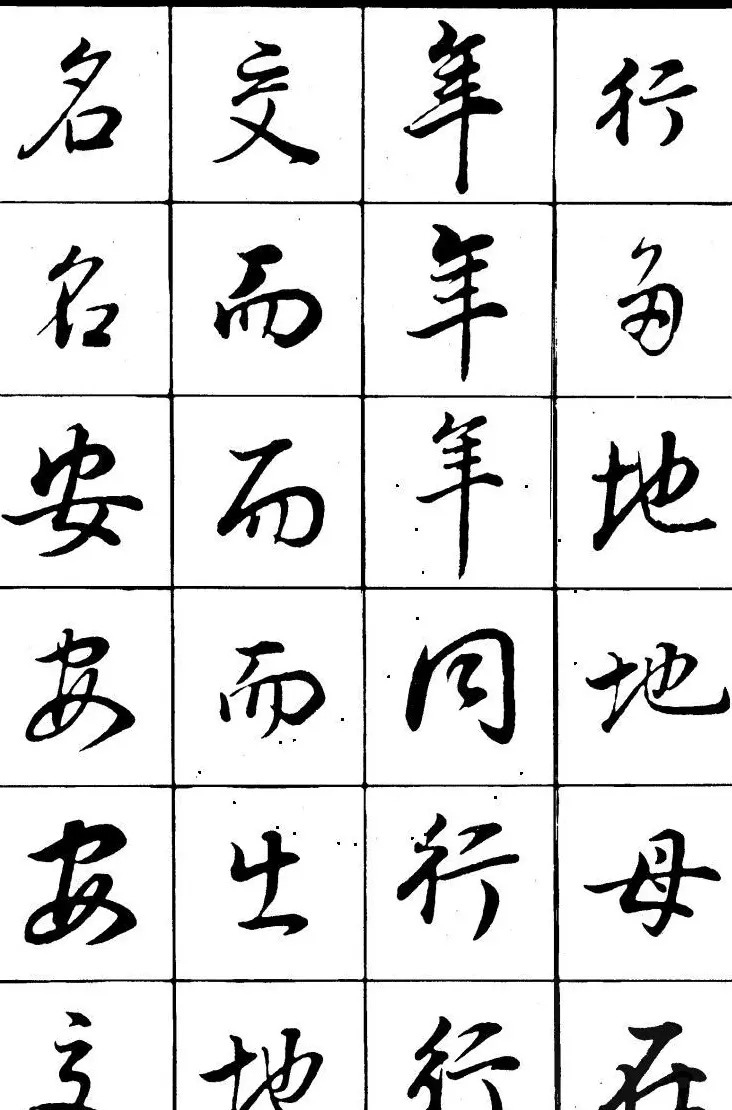 名名安安安交
交而而而出地
年年年同行行
行地地母在